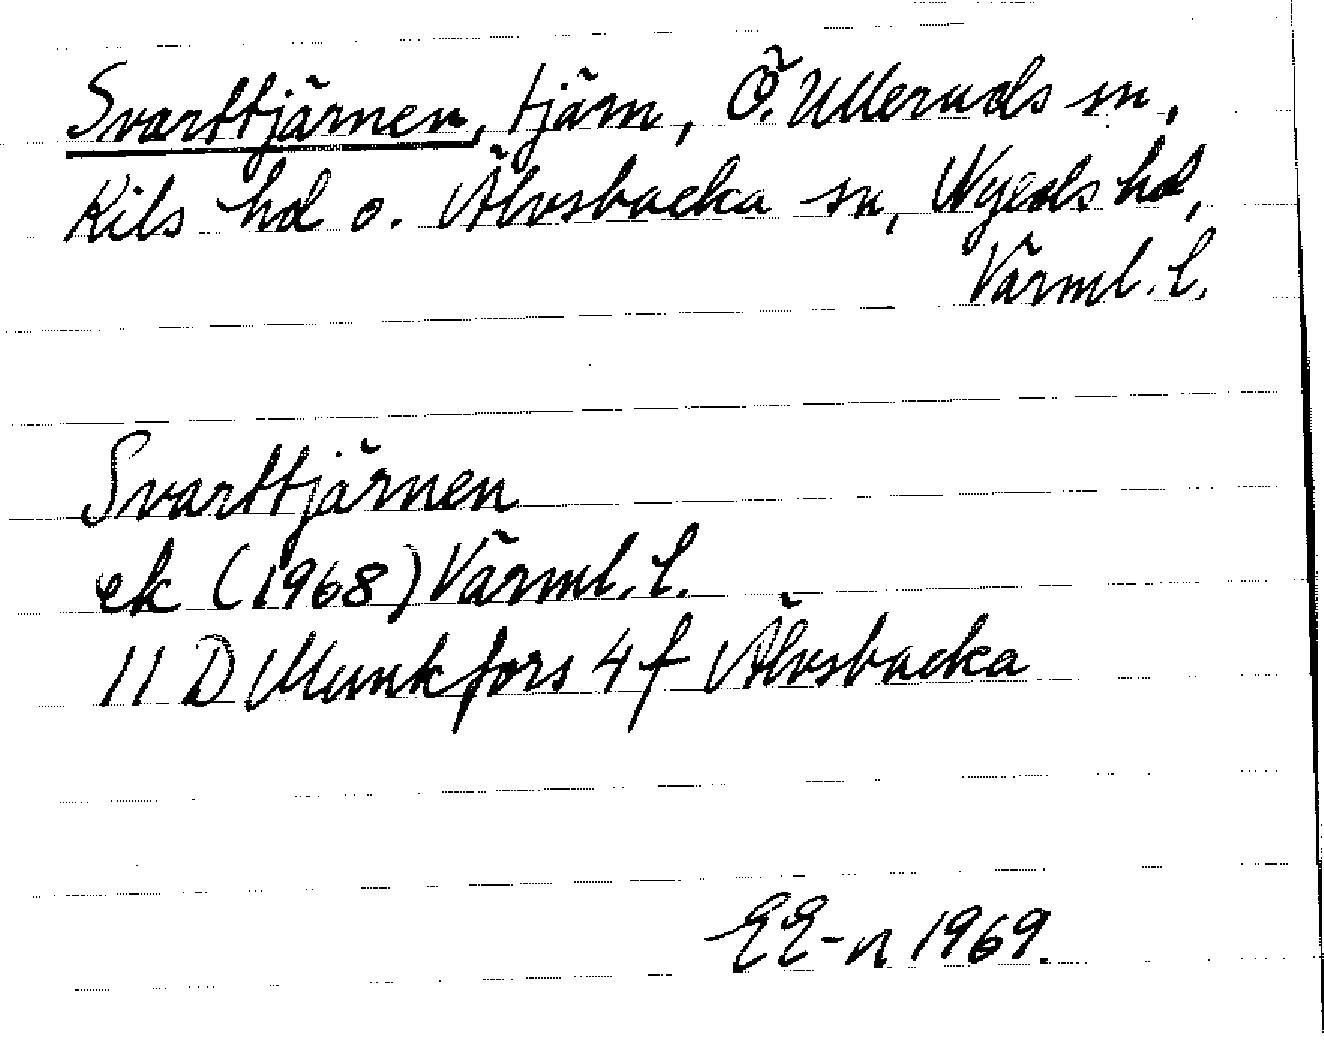 Svarttjärnen, tjärn, Ö. Ulleruds sn,
Kils hd o. Älvsbacka sn, Nyeds hd,
Värml. l.
Svarttjärnen
ek (1968) Värml. l.
11 D Munkfors 4 f Älvsbacka
EE-n 1969.